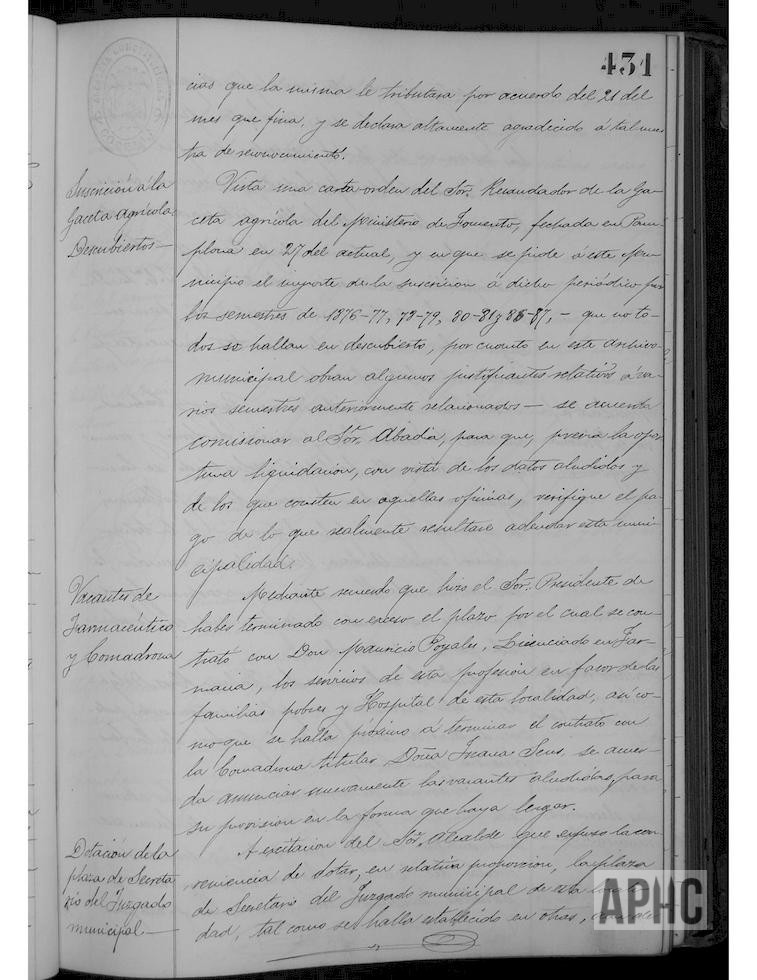 431
cias que la misma le tributara por acuerdo del 21 del
mes que fina, y se declara altamente agradecido á tal mues
tra de reconocimiento.
Suscrición á la
Gaceta Agrícola.
Descubiertos—
Vista una carta-orden del Sor. Recaudador de la Ga-
ceta agrícola del Ministerio de Fomento, fechada en Pam-
plona en 27 del actual, y en que se pide á este Mu-
nicipio el importe de la suscrición á dicho periódico por
los semestres de 1876-77, 78-79, 80-81 y 86-87,- que no to-
dos se hallan en descubierto, por cuanto en este archivo
municipal obran algunos justificantes relativos á va-
rios semestres anteriormente relacionados— se acuerda
comisionar al Sor. Abadia, para que, previa la opor
tuna liquidacion, con vista de los datos aludidos y
de los que consten en aquellas oficinas, verifique el pa-
go de lo que realmente resultare adeudar esta muni-
cipalidad.
Vacantes de
Farmacéutico
y Comadrona
Mediante recuerdo que hizo el Sor. Presidente de
haber terminado con exceso el plazo por el cual se con-
trató con Don Mauricio Poyales, Licenciado en Far-
macia, los servicios de esta profesión en favor de las
familias pobres y Hospital de esta localidad, así co-
mo que se halla próximo á terminar el contrato con
la Comadrona titular Doña se acuer-
da anunciar nuevamente las vacantes aludidas, para
su provision en la forma que haya lugar.
Dotación de la
plaza de Secreta
rio del Juzgado
municipal.—
A escitacion del Sor. Alcalde que expuso la con
veniencia de dotar, en relativa proporcion, la plaza
de Secretario del Juzgado municipal de esta
dad, tal como se halla establecido en otras,
APHC